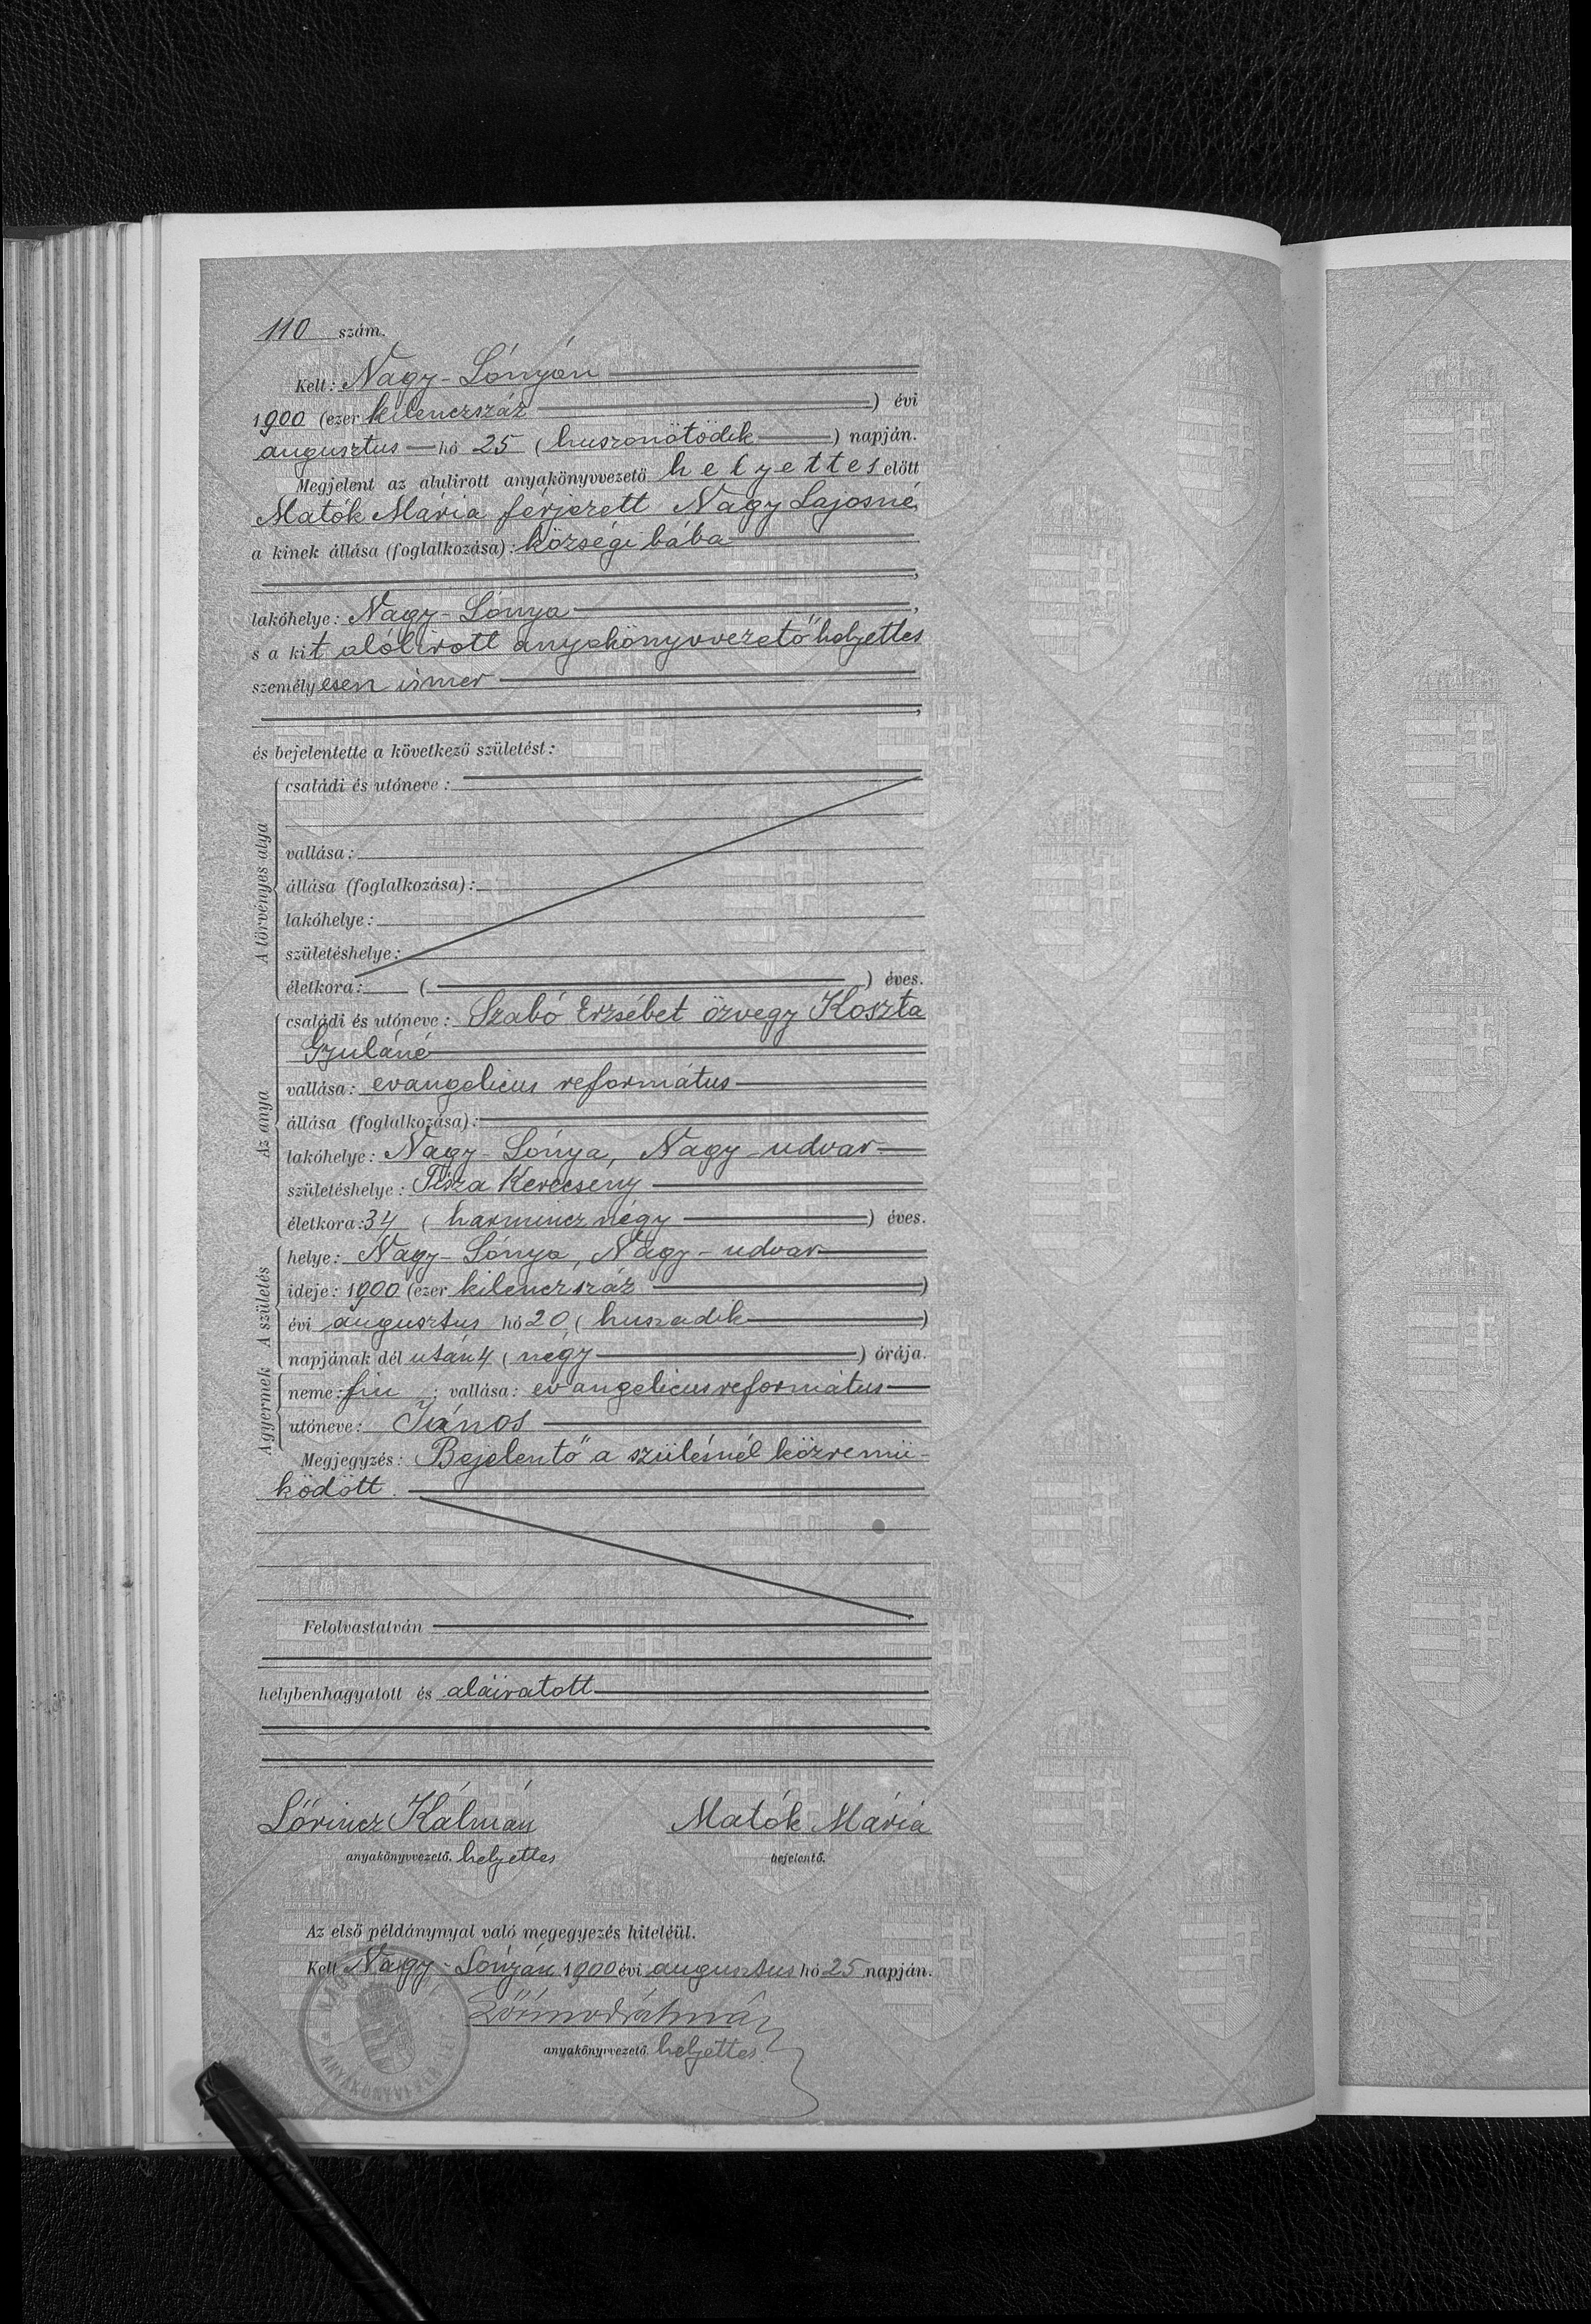 110 szám.
Kelt: Nagy-Lónyán
1900 (ezer kilenczszáz) évi
augusztus hó 25 (huszonötödik) napján.
Megjelent az alulirott anyakönyvvezető helyettes előtt
Matók Mária férjezett Nagy Lajosné,
a kinek állása (foglalkozása): községi bába
lakóhelye: Nagy-Lónya,
s a kit alólirott anyakönyvvezető helyettes
személyesen ismer
és bejelentette a következő születést:
A törvényes atya
családi és utóneve:
vallása:
állása (foglalkozása):
lakóhelye:
születéshelye:
életkora: ( ) éves.
Az anya
családi és utóneve: Szabó Erzsébet özvegy Koszta
Gyuláné
vallása: evangelicus református
állása (foglalkozása):
lakóhelye: Nagy-Lónya, Nagy-udvar
születéshelye: Tisza Kerecseny
életkora: 34 (harmincz négy) éves.
A születés
helye: Nagy-Lónya, Nagy-udvar
ideje: 1900 (ezer kilencz száz)
évi augusztus hó 20 (huszadik)
napjának dél után 4 (négy) órája.
A gyermek
neme: fiu; vallása: evangelicus református
utóneve: János
Megjegyzés: Bejelentő a szülésnél közremü-
ködött.
Felolvastatván
helybenhagyatott és aláiratott
Lőrincz Kálmán Matók Mária
anyakönyvvezető. helyettes bejelentő.
Az első példánynyal való megegyezés hiteléül.
Kelt Nagy-Lónyán 1900 évi augusztus hó 25 napján.
anyakönyvvezető. helyettes